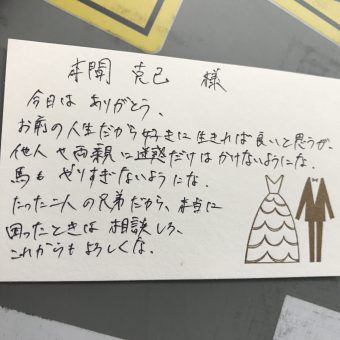 本間 克己 様
今日は ありがとう、
お前の人生だから好きに生きれば良いと思うが、
他人や両親に迷惑だけはかけないようにな。
馬も やりすぎないようにな.
たった二人の兄弟だから、本当に
困ったときは 相談しろ、
これからも よろしくな。